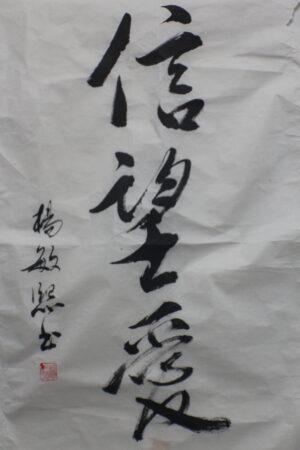 信望愛
楊敏熙书